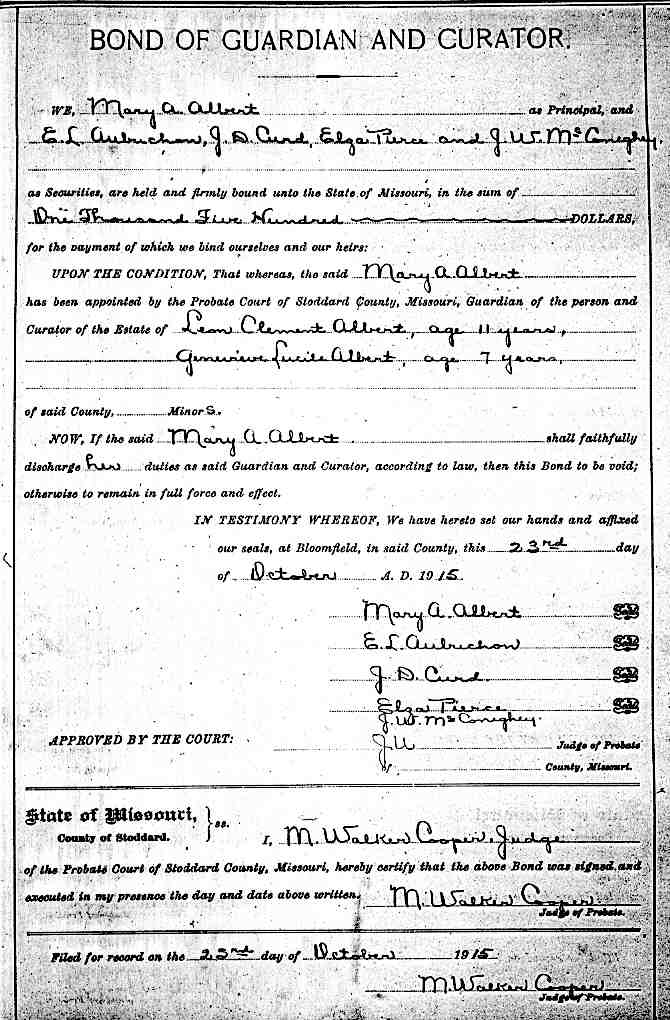 BOND OF GUARDIAN AND CURATOR.
WE, Mary A. Albert as Principal, and
E. L. Aubuchon, J. D. Curd, Elza Pierce and J. W. McConeghey,
as Securities, are held and firmly bound unto the State of Missouri, in the sum of
One Thousand Five Hundred DOLLARS,
for the payment of which we bind ourselves and our heirs:
UPON THE CONDITION, That whereas, the said Mary A Albert
has been appointed by the Probate Court of Stoddard County, Missouri, Guardian of the person and
Curator of the Estate of Leon Clement Albert, age 11 years,
Genevieve Lucile Albert, age 7 years,
of said County, Minors.
NOW, If the said Mary A. Albert shall faithfully
discharge her duties as said Guardian and Curator, according to law, then this Bond to be void;
otherwise to remain in full force and effect.
IN TESTIMONY WHEREOF, We have hereto set our hands and affixed
our seals, at Bloomfield, in said County, this 23rd day
of October A. D. 1915.
Mary A. Albert
E. L. Aubuchon
J. D. Curd
Elza Pierce
J. W. McConeghey.
APPROVED BY THE COURT:
Judge of Probate
of County, Missouri.
State of Missouri, } ss.
County of Stoddard.
I, M. Walker Cooper, Judge
of the Probate Court of Stoddard County, Missouri, hereby certify that the above Bond was signed and
executed in my presence the day and date above written.
M. Walker Cooper
Judge of Probate.
Filed for record on the 23rd day of October 1915
M. Walker Cooper
Judge of Probate.